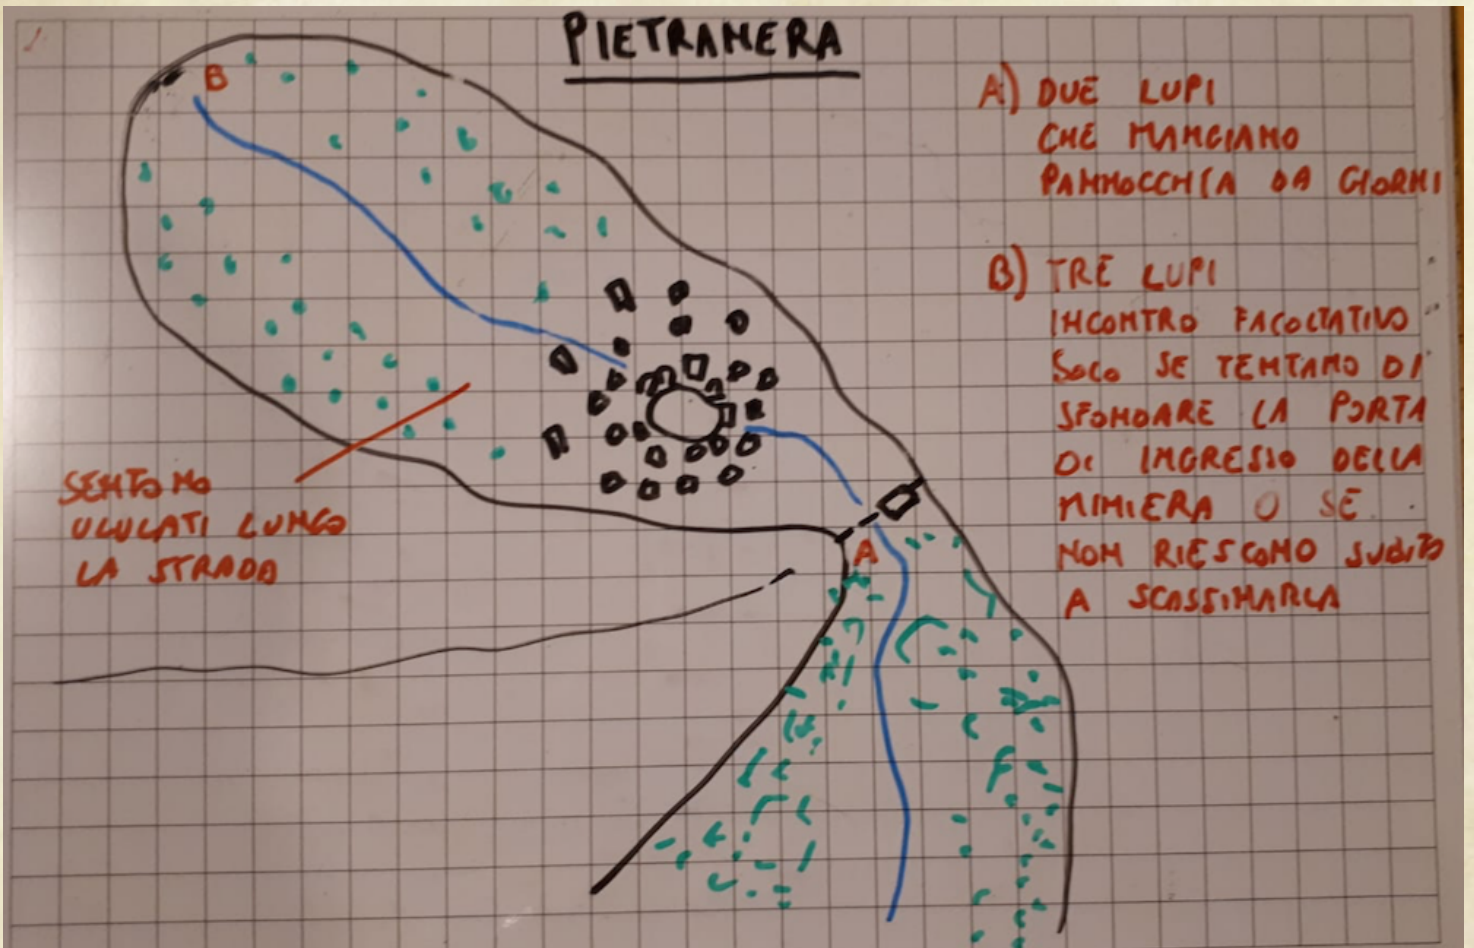 PIETRANERA
B
A) DUE LUPI
CHE MANGIANO
PANNOCCHIA DA GIORNI
B) TRE LUPI
INCONTRO FACOLTATIVO
SOLO SE TENTANO DI
SFONDARE LA PORTA
DI INGRESSO DELLA
MINIERA O SE
NON RIESCONO SUBITO
A SCASSINARLA
SENTONO
ULULATI LUNGO
LA STRADA
A